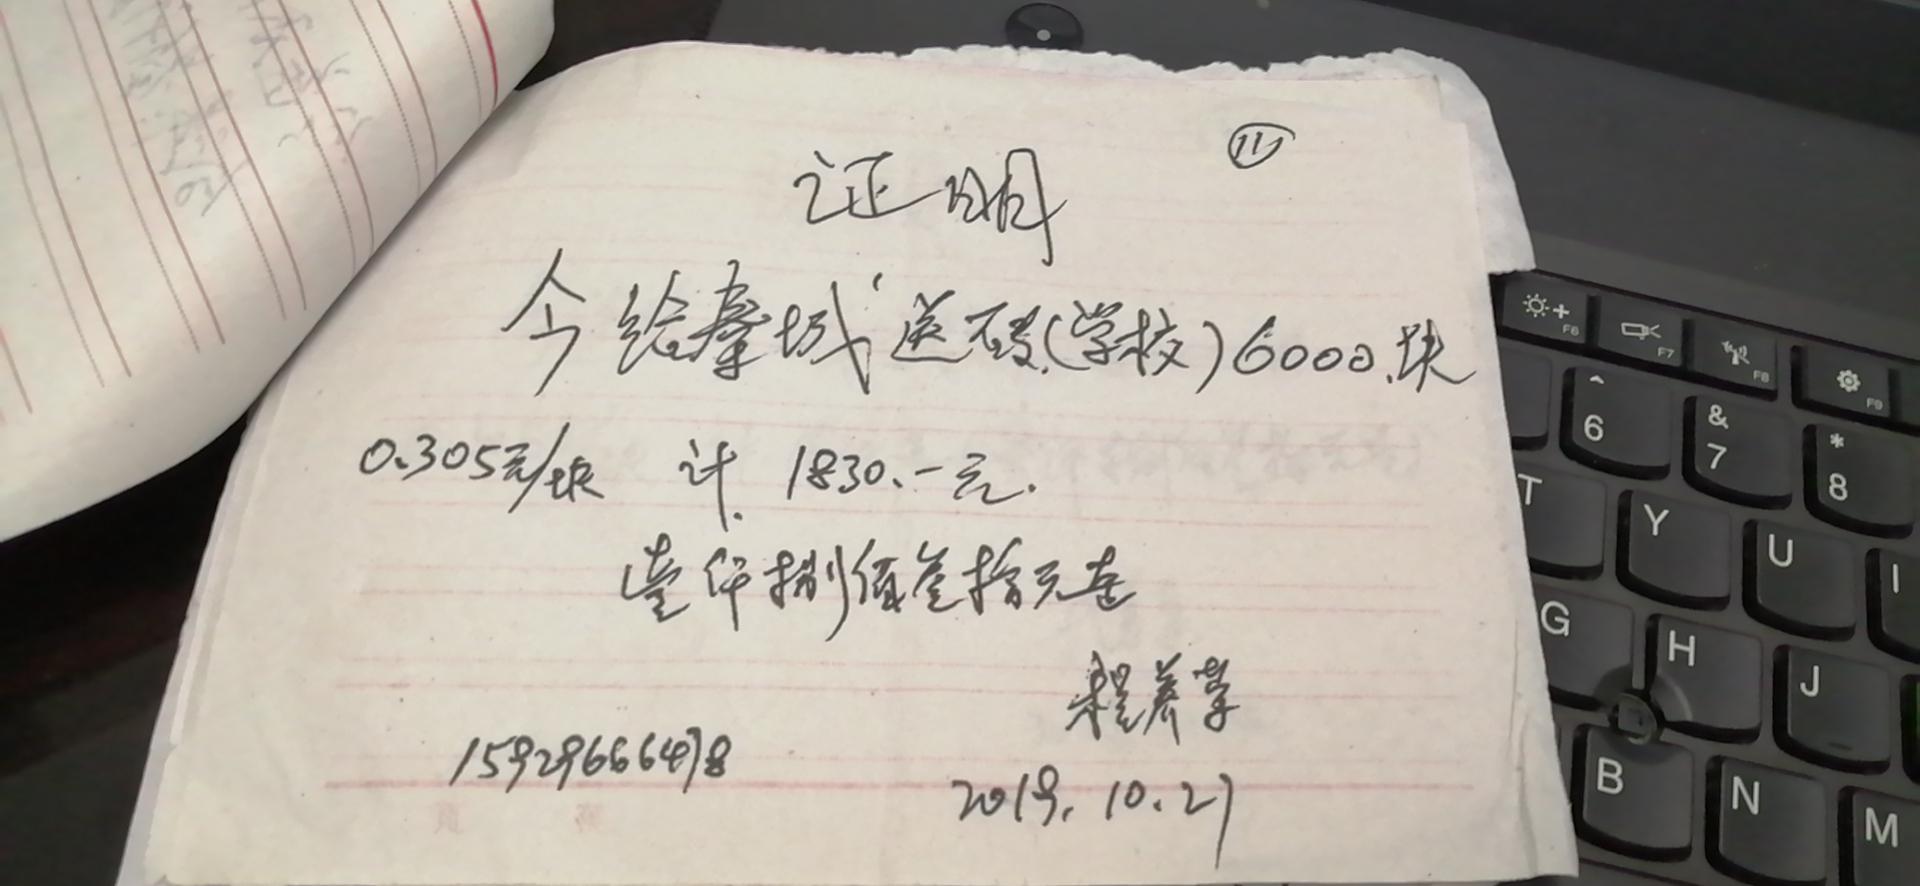 ⑪
证明
今给秦城送砖(学校)6000块
0.305元/块 计 1830.-元.
壹仟捌佰叁拾元整
程养学
15929666478
2019.10.27
F6
F7
F8
F9
^ 6
& 7
* 8
T Y U I
G H J
B N M